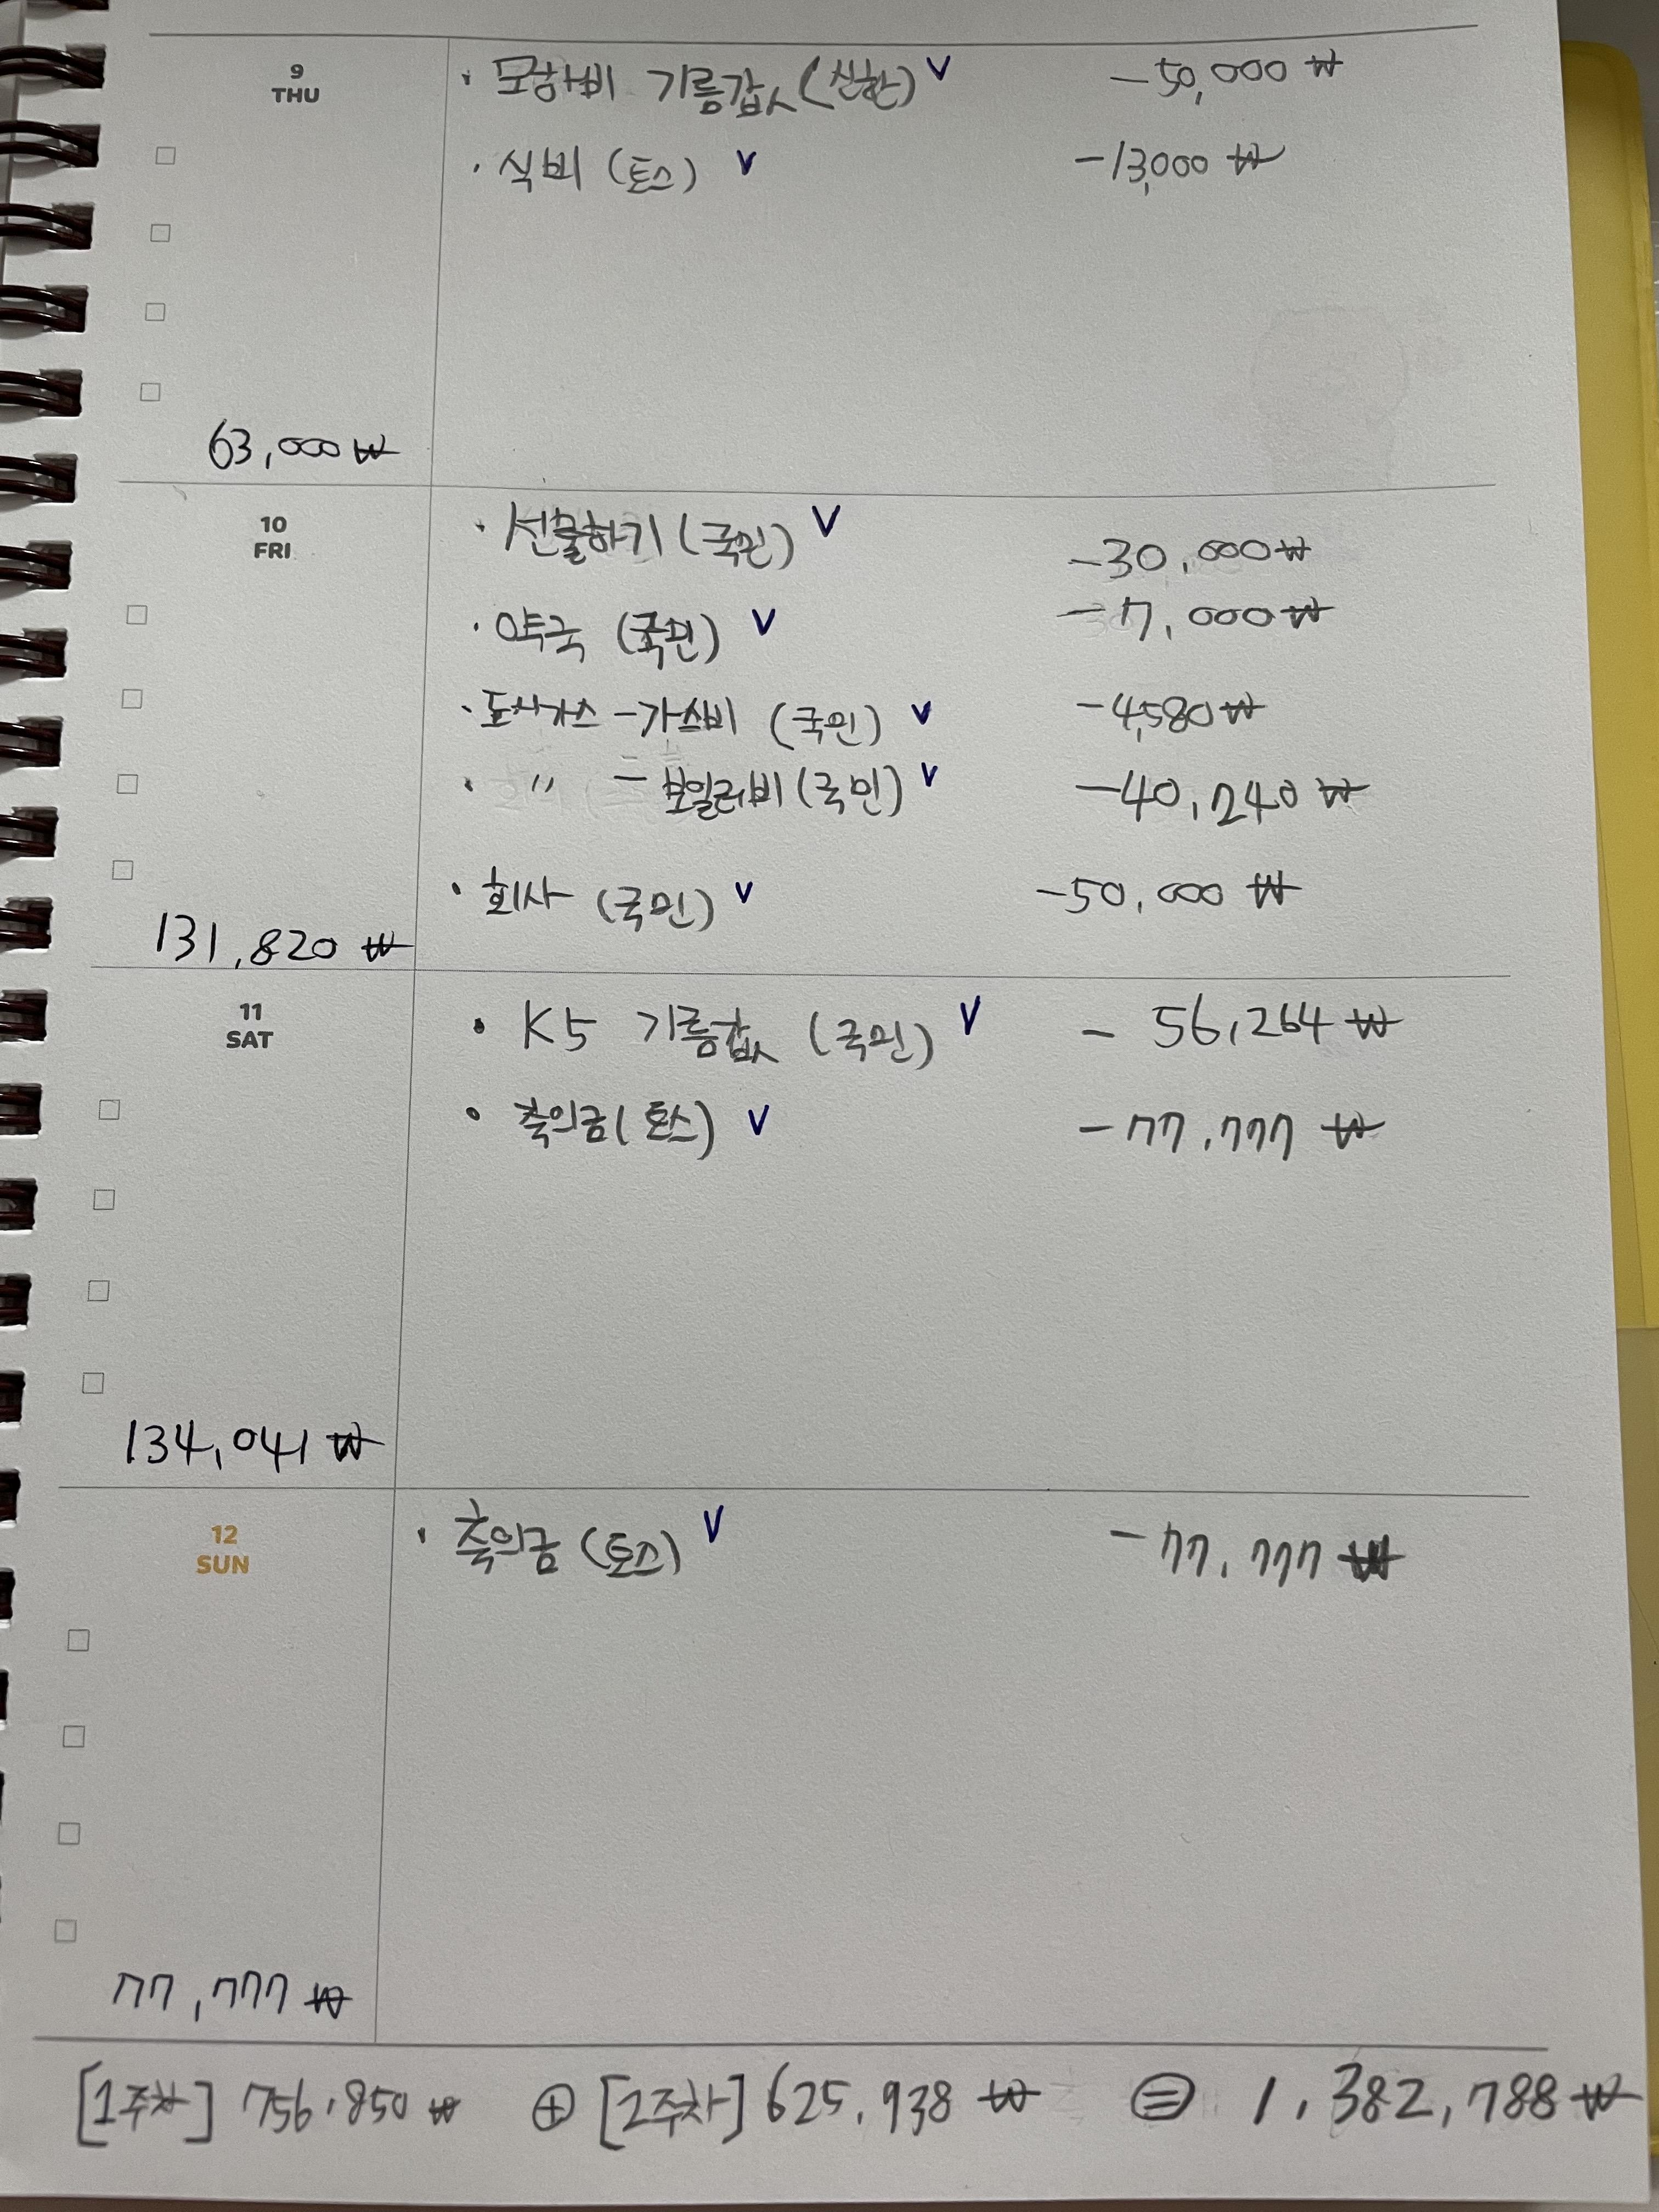 9
THU
· 모하비 기름값 (신한) V -50,000 ₩
· 식비 (토스) V -13,000 ₩
63,000 ₩
10
FRI
· 선물하기 (국민) V -30,000 ₩
· 약국 (국민) V -7,000 ₩
· 도시가스 - 가스비 (국민) V -4,580 ₩
· " - 보일러비 (국민) V -40,240 ₩
· 회사 (국민) V -50,000 ₩
131,820 ₩
11
SAT
· K5 기름값 (국민) V - 56,264 ₩
· 축의금 (토스) V -77,777 ₩
134,041 ₩
12
SUN
· 축의금 (토스) V -77,777 ₩
77,777 ₩
[1주차] 756,850 ₩ ⊕ [2주차] 625,938 ₩ ⊜ 1,382,788 ₩